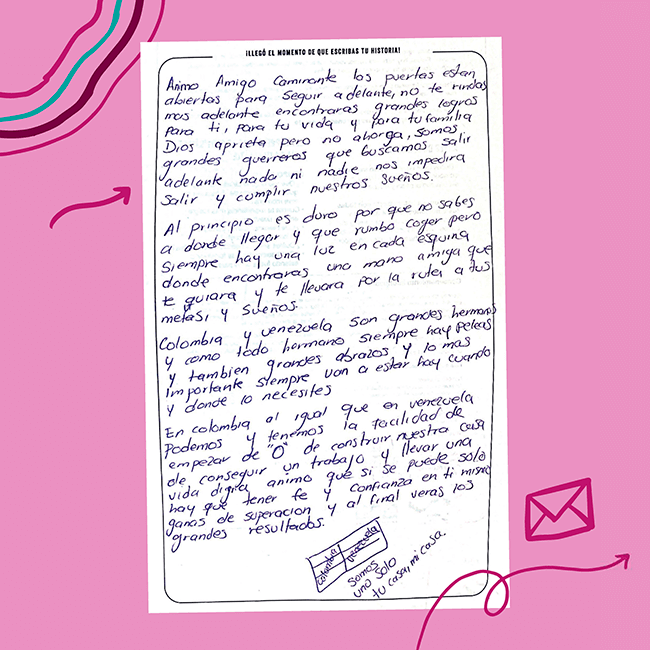 ¡LLEGÓ EL MOMENTO DE QUE ESCRIBAS TU HISTORIA!
Animo Amigo Caminante las puertas estan
abiertas para seguir adelante, no te rindas
mas adelante encontraras grandes logros
para ti, para tu vida y para tu familia
Dios aprieta pero no ahorga, somos
grandes guerreros que buscamos salir
adelante nada ni nadie nos impedira
salir y cumplir nuestros sueños.
Al principio es duro por que no sabes
a donde llegar y que rumbo coger pero
siempre hay una luz en cada esquina
donde encontraras una mano amiga que
te guiara y te llevara por la ruta, a tus
metas, y sueños.
Colombia y venezuela son grandes hermanos
y como todo hermano siempre hay peleas
y tambien grandes abrazos y lo mas
importante siempre van a estar hay cuando
y donde lo necesites
En colombia al igual que en venezuela
Podemos y tenemos la facilidad de
empezar de "0" de construir nuestra casa
de conseguir un trabajo y llevar una
vida digna animo que si se puede solo
hay que tener fe y confianza en ti mismo
ganas de superacion y al final veras los
grandes resultados.
colombia venezuela
Somos
uno solo
tu casa, mi casa.